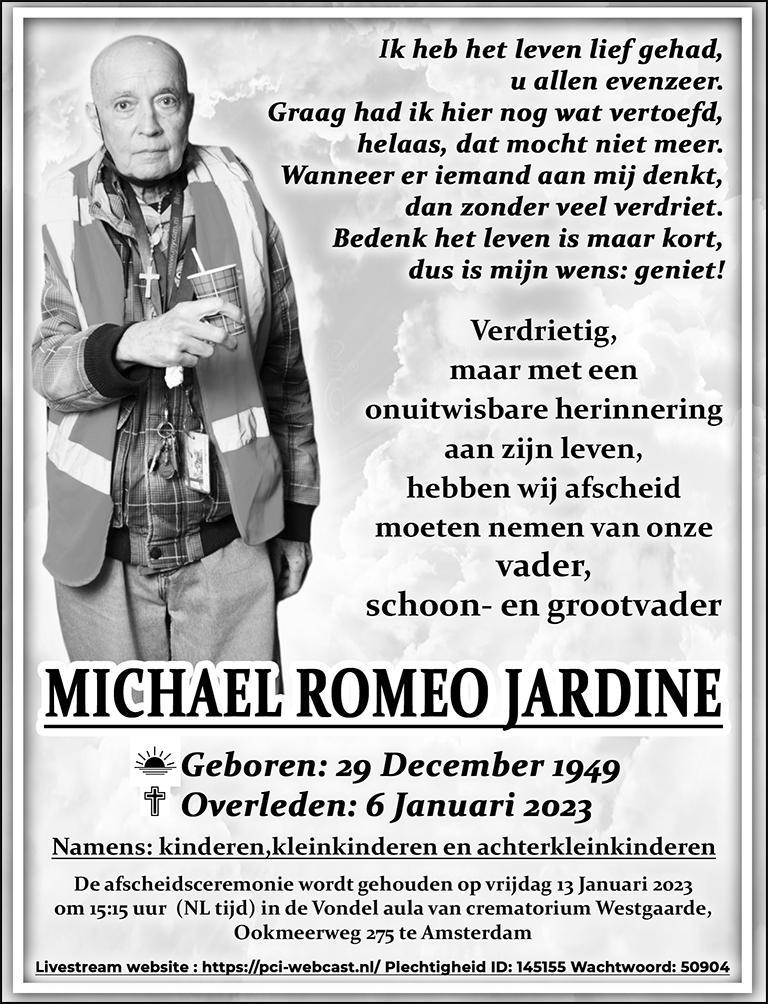 Ik heb het leven lief gehad,
u allen evenzeer.
Graag had ik hier nog wat vertoefd,
helaas, dat mocht niet meer.
Wanneer er iemand aan mij denkt,
dan zonder veel verdriet.
Bedenk het leven is maar kort,
dus is mijn wens: geniet!
Verdrietig,
maar met een
onuitwisbare herinnering
aan zijn leven,
hebben wij afscheid
moeten nemen van onze
vader,
schoon- en grootvader
MICHAEL ROMEO JARDINE
Geboren: 29 December 1949
Overleden: 6 Januari 2023
Namens: kinderen,kleinkinderen en achterkleinkinderen
De afscheidsceremonie wordt gehouden op vrijdag 13 Januari 2023
om 15:15 uur (NL tijd) in de Vondel aula van crematorium Westgaarde,
Ookmeerweg 275 te Amsterdam
Livestream website : https://pci-webcast.nl/ Plechtigheid ID: 145155 Wachtwoord: 50904